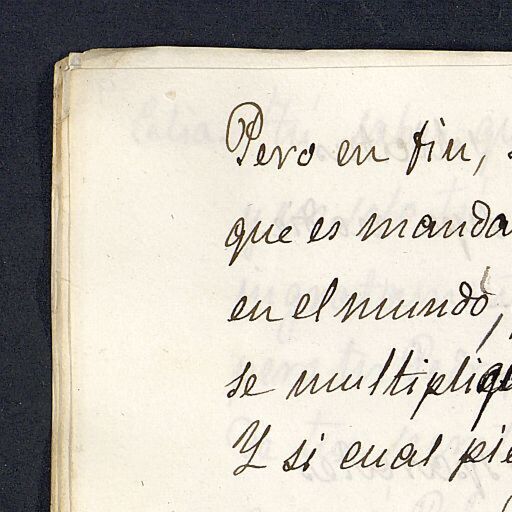 Pero en fin,
que es manda
en el mundo,
se multipliqu
Y si cual pie